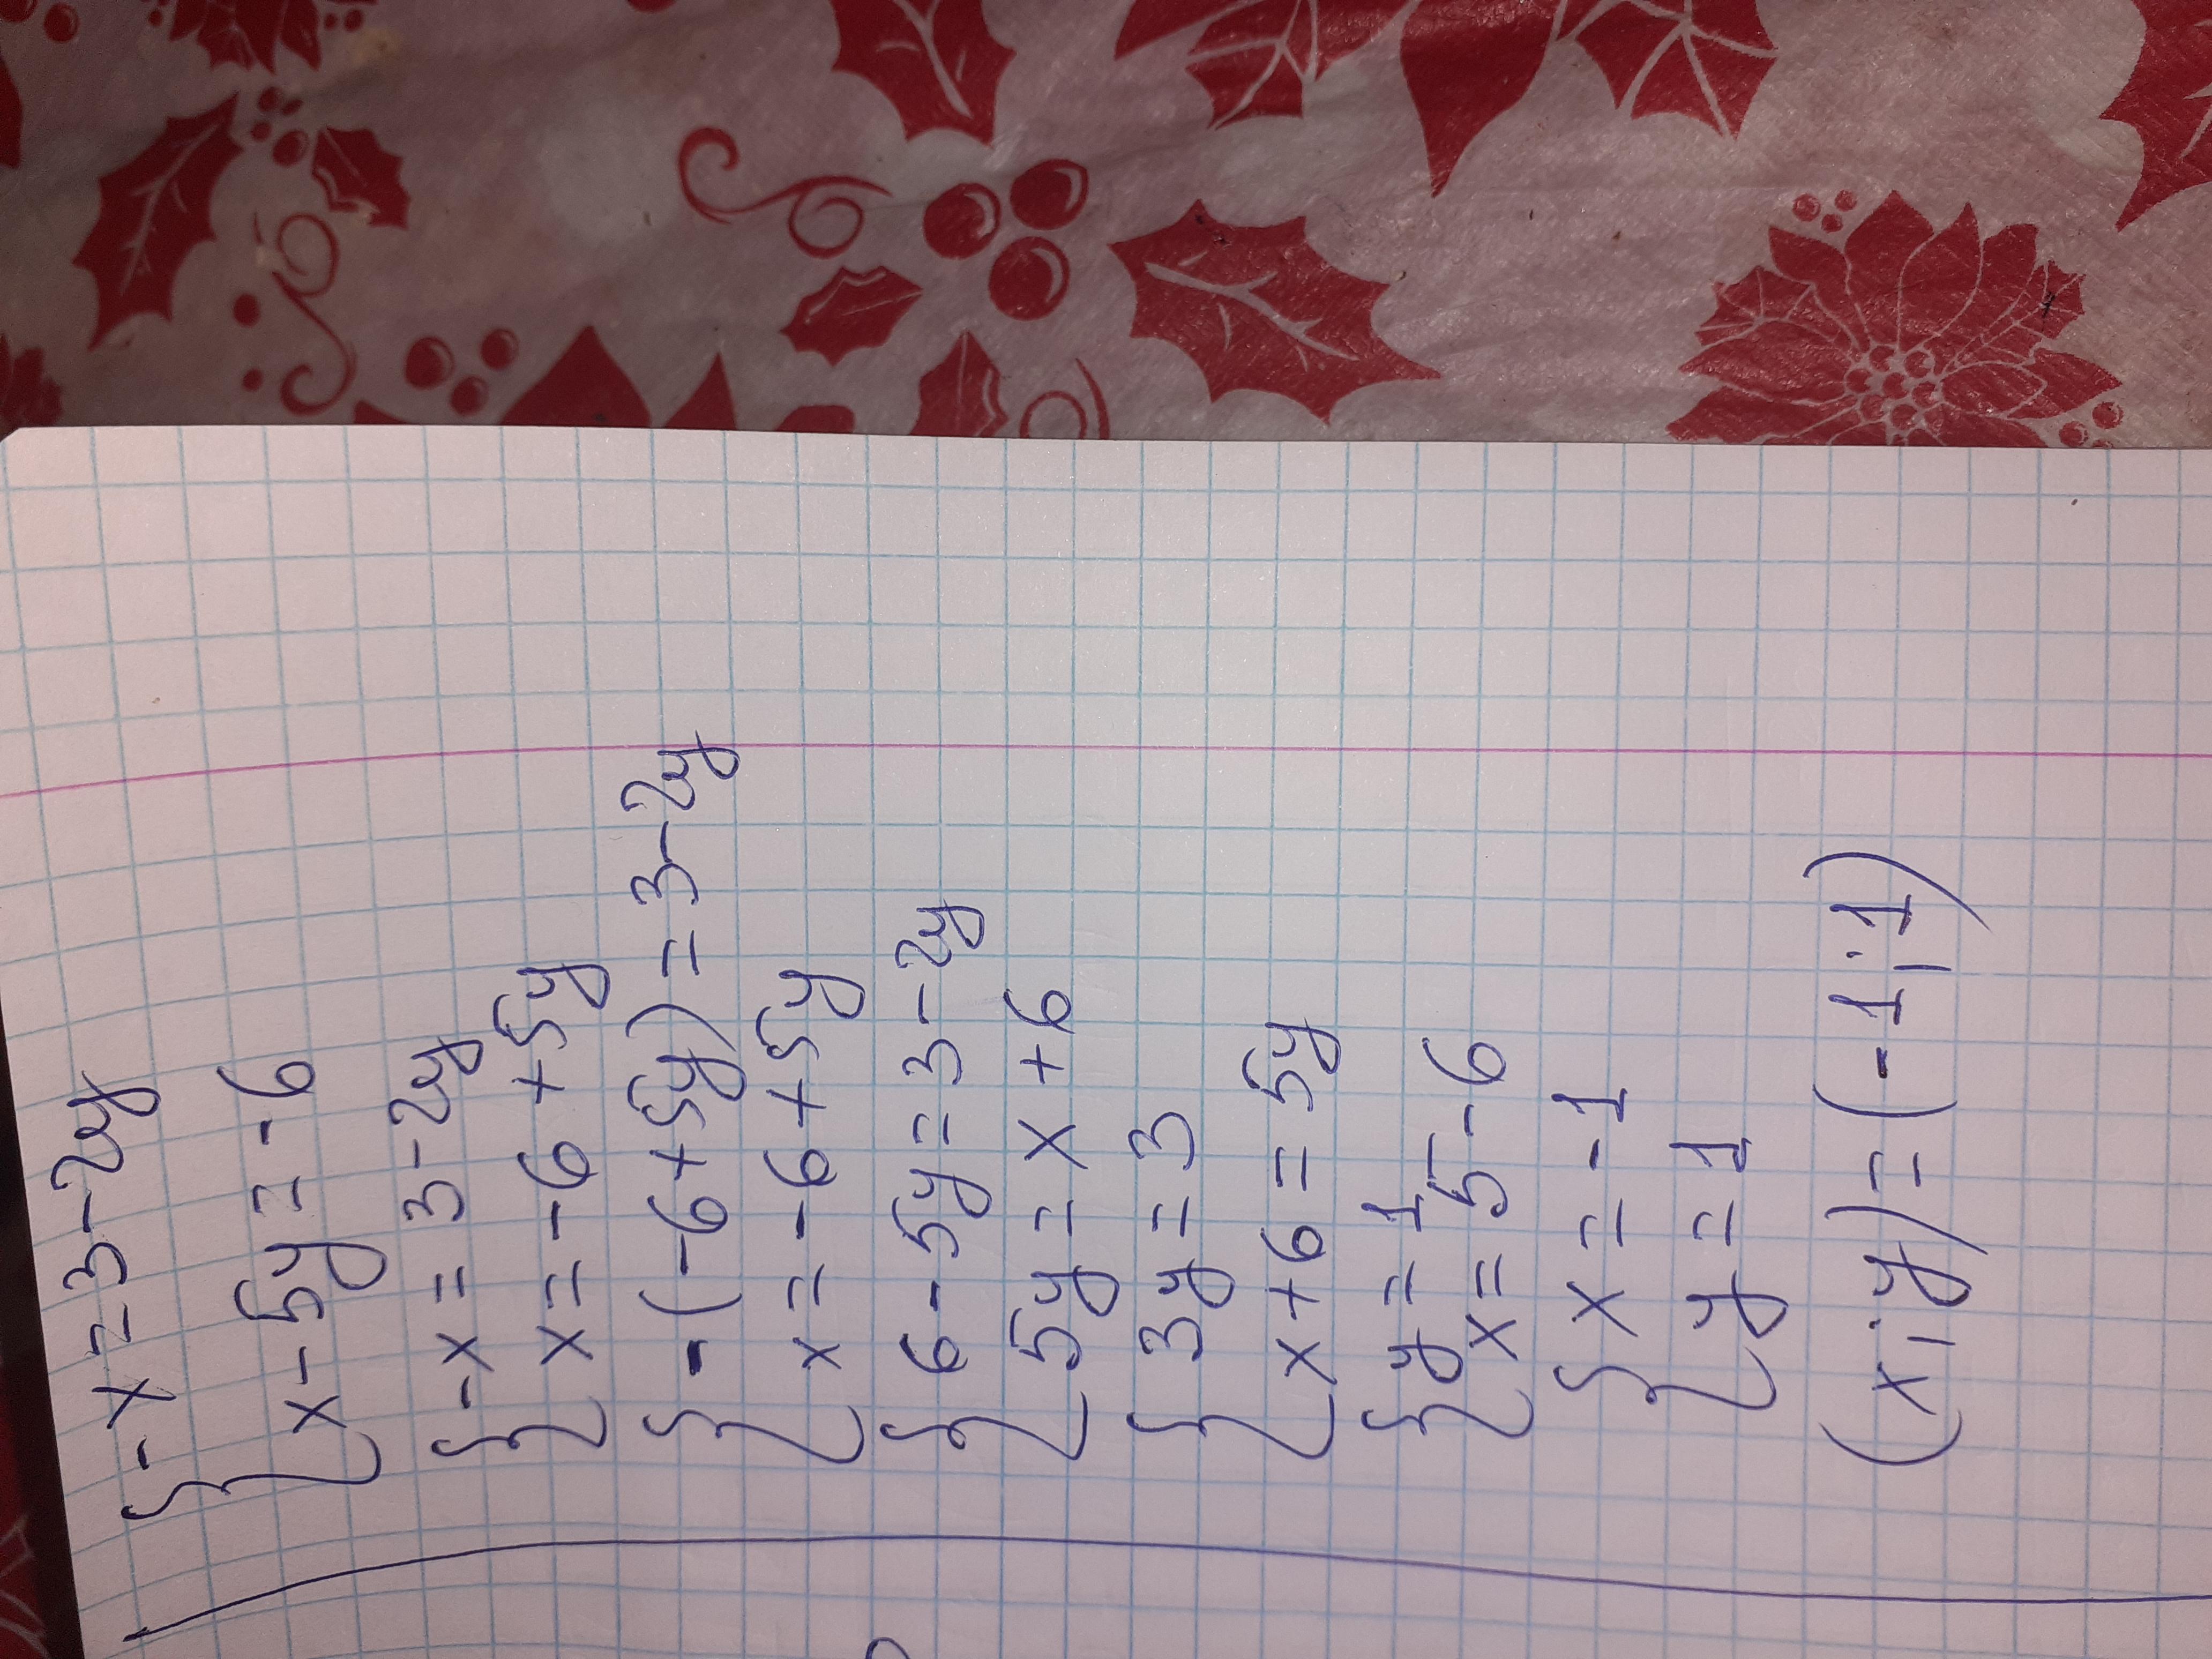 {-x=3-2y
x-5y=-6
{-x=3-2y
x=-6+5y
{-(-6+5y)=3-2y
x=-6+5y
{6-5y=3-2y
5y=x+6
{3y=3
x+6=5y
{y=1
x=5-6
{x=-1
y=1
(x;y)=(-1;1)